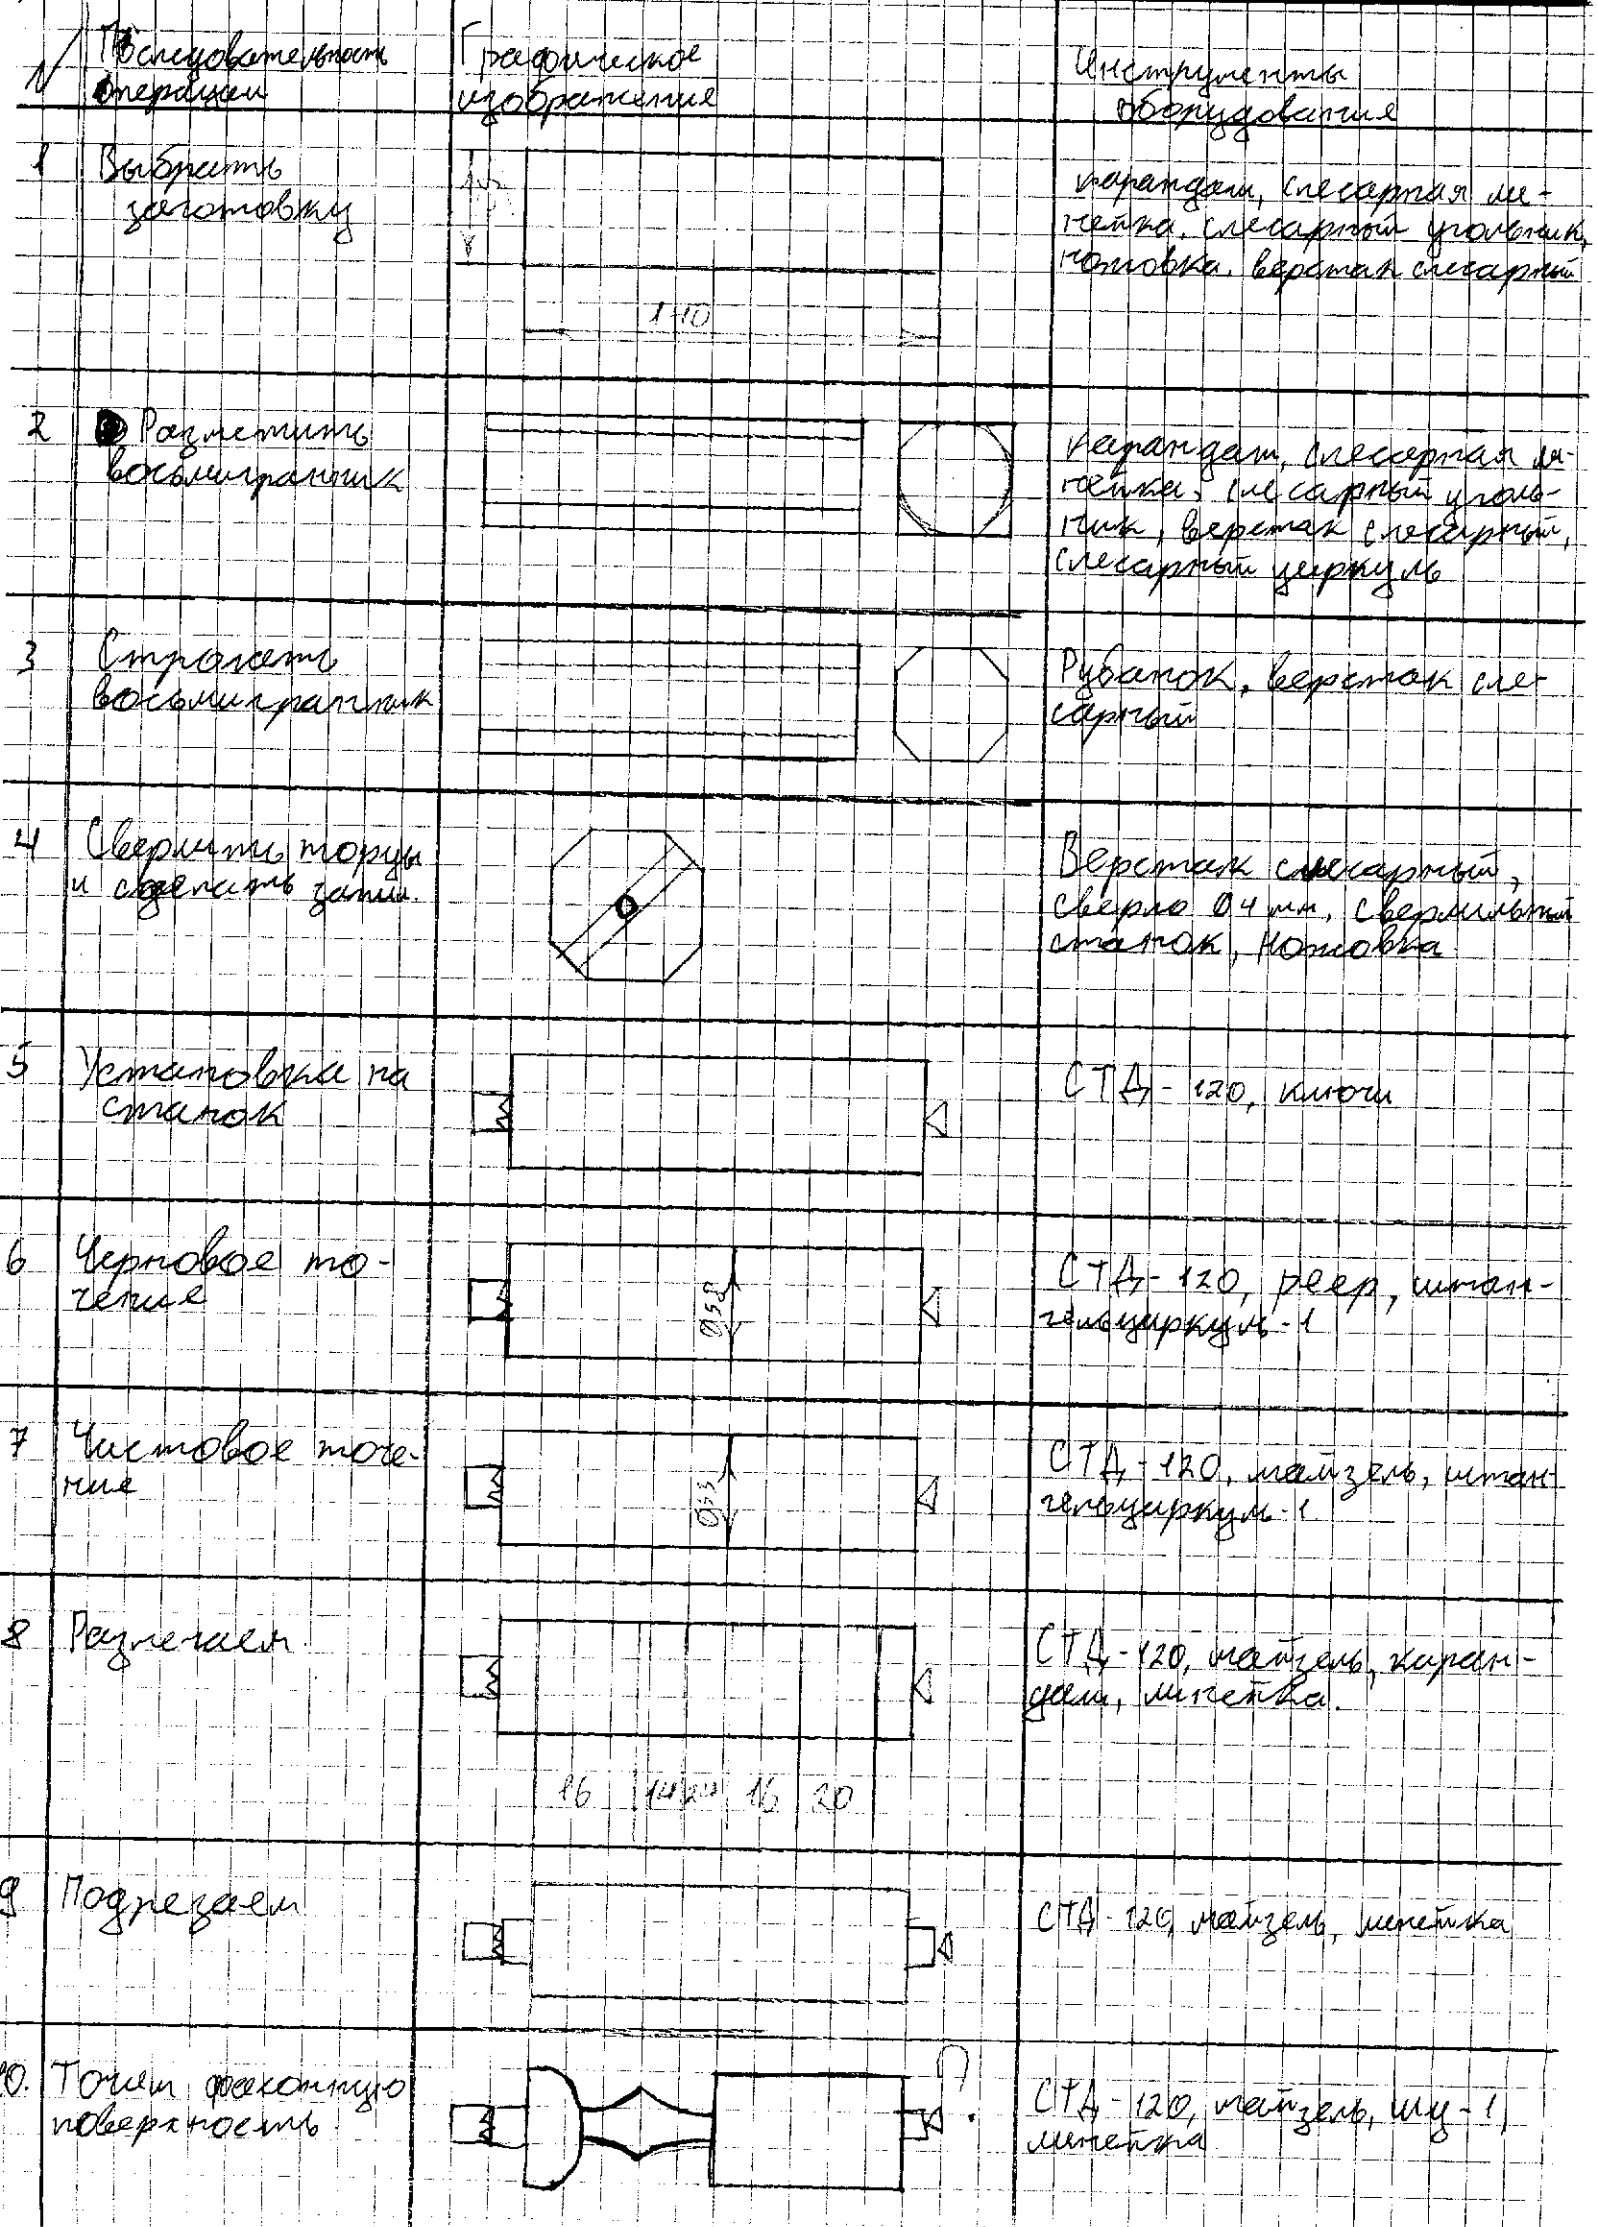 N
Последовательность
операции
Графическое
изображение
Инструменты
оборудования
1
Выбрать
заготовку
110
карандаш, слесарная ли-
нейка, слесарный угольник,
ножовка, верстак слесарный
2
Разметить
восьмигранник
карандаш, слесарная ли-
нейка, слесарный уголь-
ник, верстак слесарный,
слесарный циркуль
3
Строгать
восьмигранник
Рубанок, верстак сле-
сарный
4
Сверлить торцы
и сделать запил.
Верстак слесарный,
сверло Ø4 мм, сверлильный
станок, ножовка
5
Установка на
станок
СТД-120, ключи
6
Черновое то-
чение
СТД-120, реер, штан-
гельциркуль-1
7
Чистовое точе-
ние
Ø33
СТД-120, майзель, штан-
гельциркуль-1
8
Размечаем
16 16 20
СТД-120, майзель, каран-
даш, линейка.
9
Подрезаем
СТД-120, майзель, линейка
10.
Точим фасонную
поверхность
СТД-120, майзель, шц-1,
линейка